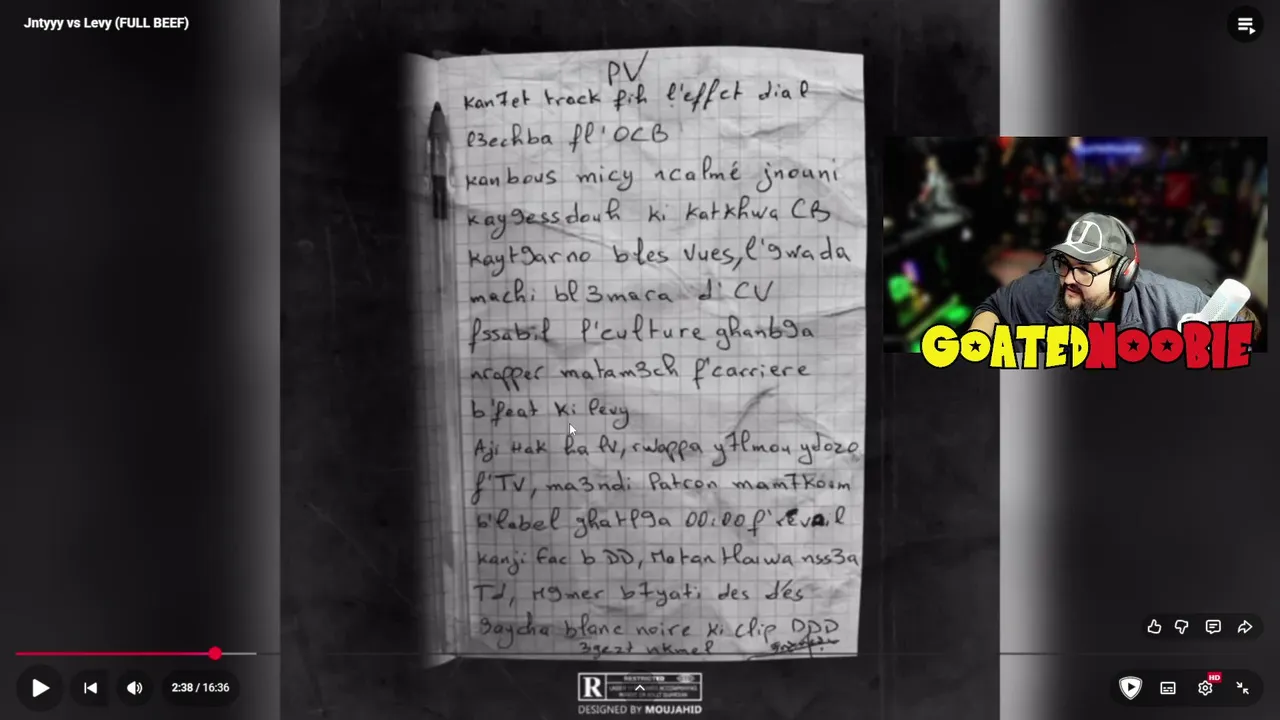 Jntyyy vs Levy (FULL BEEF)
PV
Kan7et track fih l'effet dial
l3echba fl'OCB
kanbous micy ncalmé jnouni
kay9essdouh ki katkhwa CB
kayt9arno bles vues, l'9wada
machi bl3mara d'CV
fssabil l'culture ghanb9a
nrapper matam3ch f'carriere
b'feat ki levy
Aji Hak ha PV, rwappa y7lmou ydozo
f'TV, ma3ndi Patron mam7koum
b'label ghatl9a 00:00 f'reveil
kanji fac b DD, Matan nss3a
Td, M9mer b7yati des dés
9aycha blanc noire ki clip DDD
3gezt nkmel
GOATEDNOOBIE
2:38 / 16:36
HD
R RESTRICTED
DESIGNED BY MOUJAHID